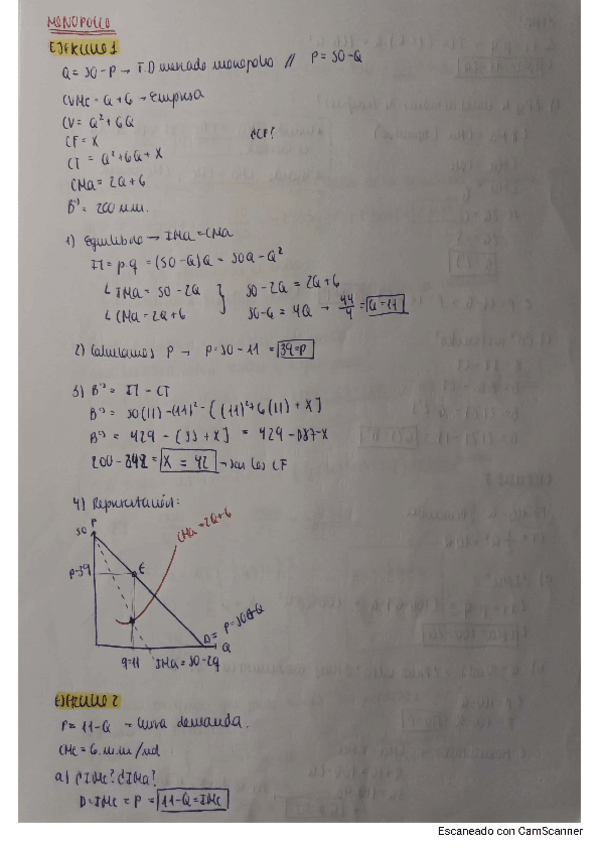 MONOPOLIO
EJERCICIO 1
Q = 50-P → F.D mercado monopolio // P = 50-Q
CVMe = Q+6 → empresa
CV = Q² + 6Q
CF = X ¿CF?
CT = Q² + 6Q + X
CMa = 2Q+6
Bº = 200 u.m.
1) Equilibrio → IMa = CMa
IT = p·q = (50-Q)Q = 50Q - Q²
↳ IMa = 50 - 2Q } 50-2Q = 2Q+6
↳ CMa = 2Q+6 50-6 = 4Q → 44/4 = Q = 11
2) Calculamos P → P = 50 - 11 = 39 = P
3) Bº = IT - CT
Bº = 50(11) - (11)² - [(11)² + 6(11) + X]
Bº = 429 - [ + X] = 429 - 187 - X
200 - 242 = X = 42 → son los CF
4) Representación:
P
50
CMa = 2Q+6
P=39
E
D = P = 50-Q
Q
q=11 IMa = 50-2q
EJERCICIO 2
P = 11-Q → Curva demanda.
CMe = 6 u.m/ud
a) ¿IMe? ¿IMa?
D = IMe = P = 11-Q = IMe
Escaneado con CamScanner